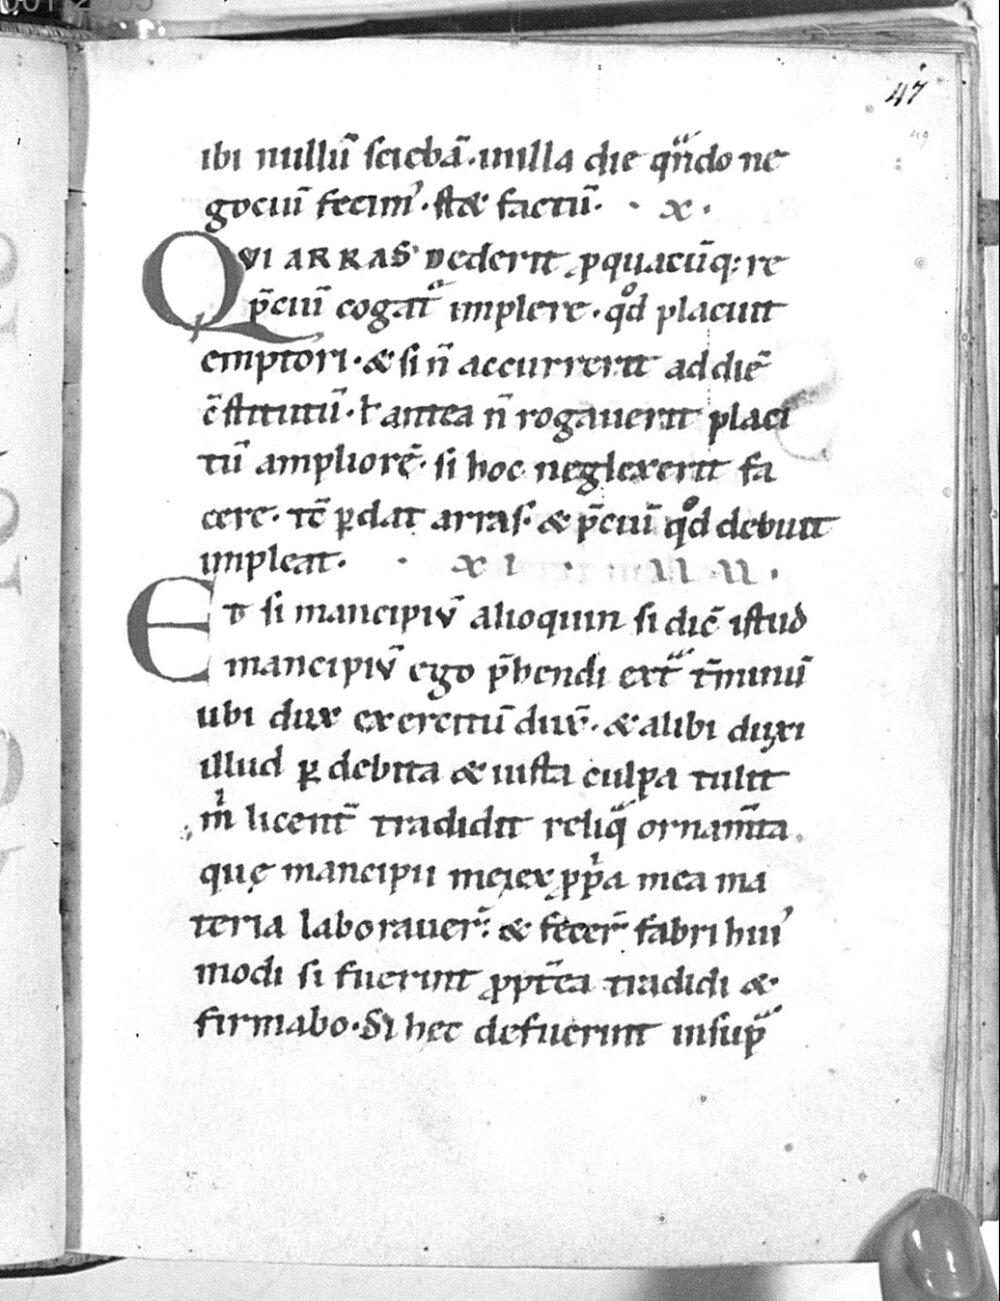 47
49
ibi nullū sciebā. in illa die qͣn̄do ne
gociū fecim᾿. stæ factū. · x ·
QVI ARRAS dederit p̱quacūq: re
p̄ciū cogatͣ implere. qͦd placuit
emptori. & si n̄ accurrerit ad diē
c̄stitutū. ł antea n̄ rogauerit placi
tū ampliorē. si hoc neglexerit fa
cere. tē ꝑdat arras. & p̄ciū qͦd debuit
impleat. · XI ·
Et si mancipiū alioquin si dic̄ istud
mancipiū ego p̄hendi extͣ t̄minū
ubi dux exercitū dux̄. & alibi duxi
illud ꝑ debita & iusta culpa tulit
m̍ licent̄ tradidit reliqͣ ornam̄ta
quę mancipii mei ex ꝓp̍a mea ma
teria laborauer̄: & fecer̄ fabri hui᾿
modi si fuerint ꝓpt̄ea tradidi &
firmabo. Si hec defuerint insupͣ